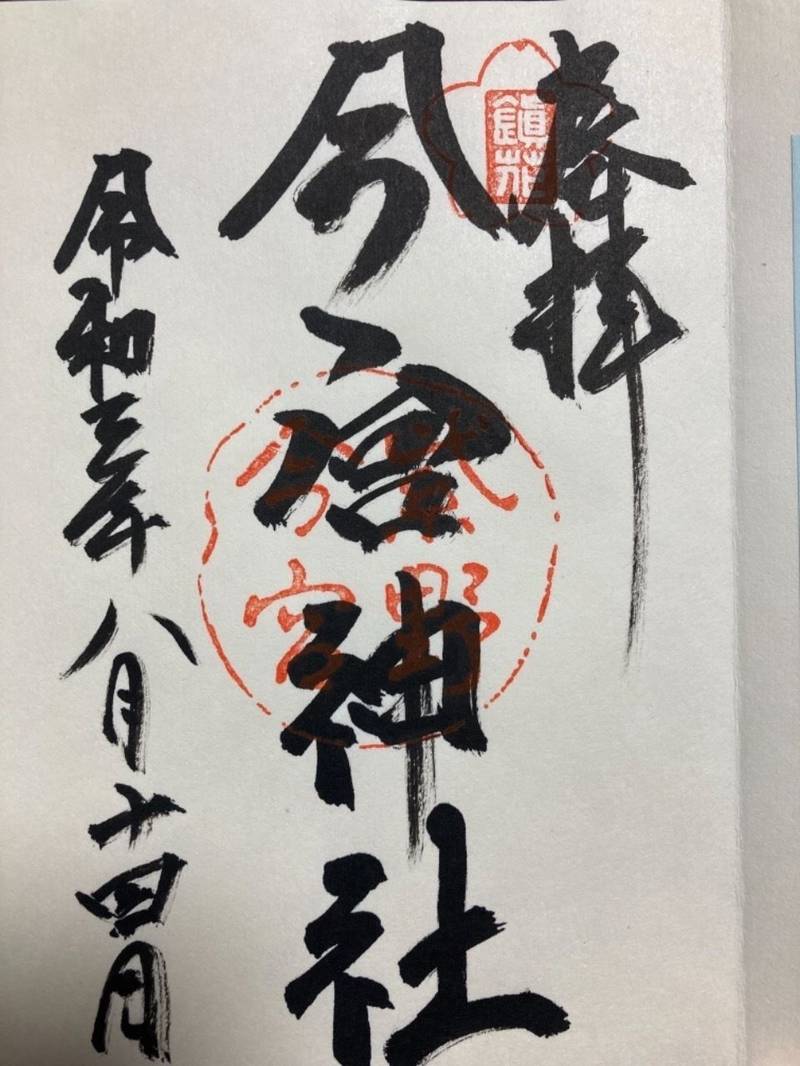 奉拝
鎮花
今宮神社
紫野
今宮
令和三年八月十四日